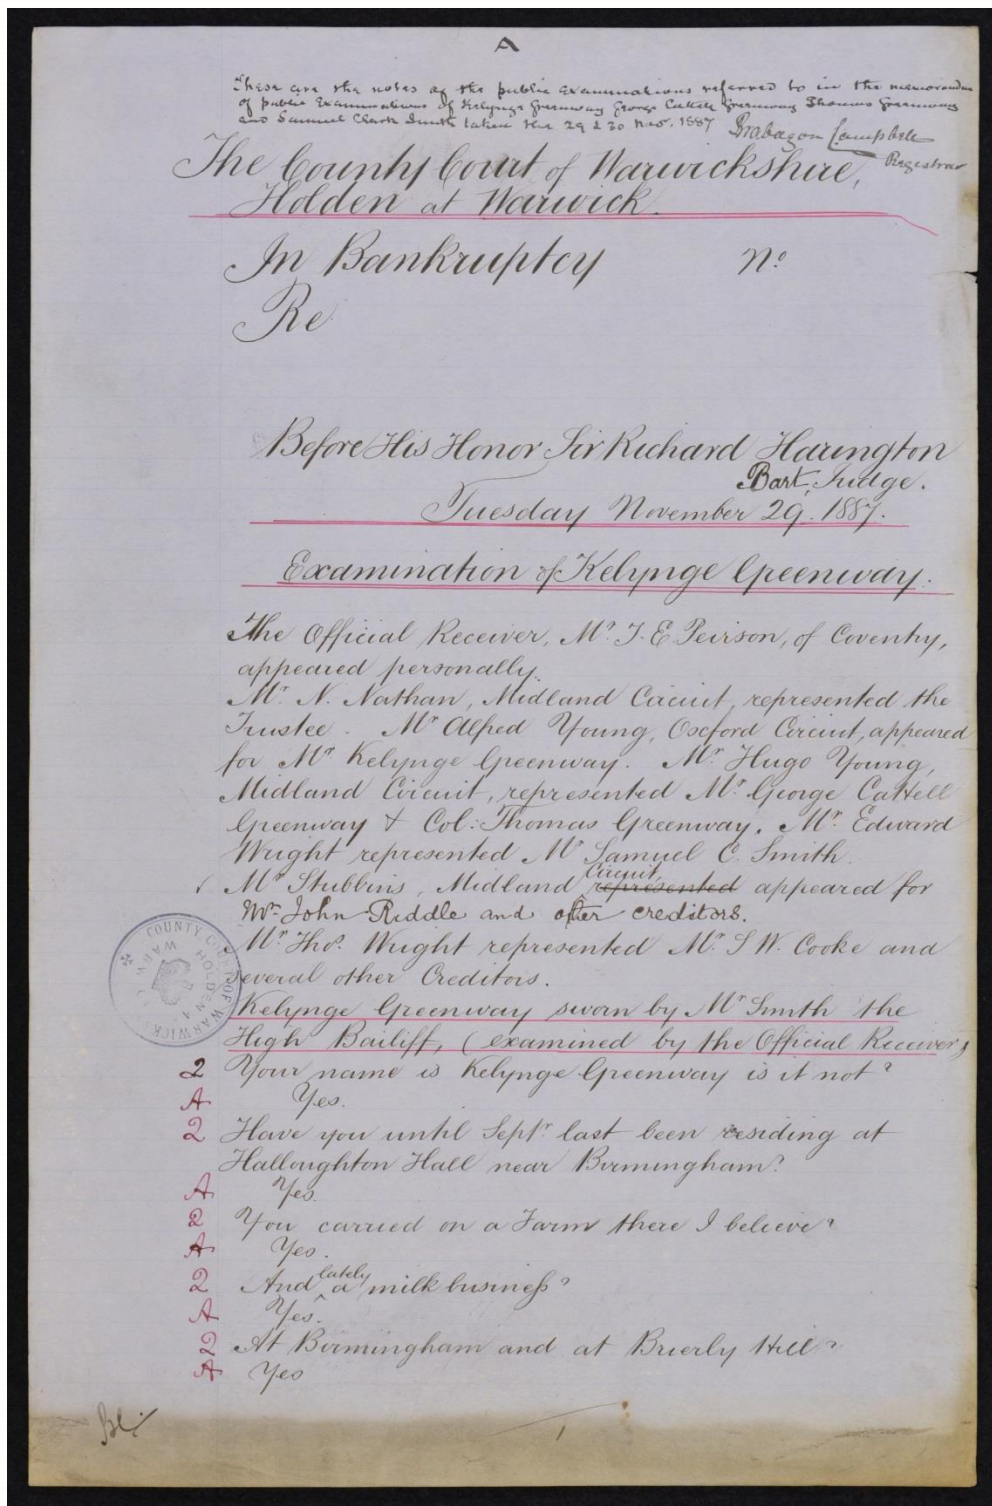 A
These are the notes of the public examinations referred to in the memorandum
of public Examinations of Kelynge Greenway George Cattell Greenway Thomas Greenway
and Samuel Clark Smith taken the 29 & 30 Nov. 1887
Brabazon Campbell
Registrar
The County Court of Warwickshire,
Holden at Warwick.
In Bankruptcy No
Re
Before His Honor Sir Richard Harington
Bart, Judge.
Tuesday November 29. 1887.
Examination of Kelynge Greenway.
The Official Receiver, Mr. J. E Peirson, of Coventry,
appeared personally.
Mr. N. Nathan, Midland Circuit, represented the
Trustee. Mr Alfred Young, Oxford Circuit, appeared
for Mr Kelynge Greenway. Mr. Hugo Young,
Midland Circuit, represented Mr. George Cattell
Greenway & Col: Thomas Greenway. Mr. Edward
Wright represented Mr Samuel C. Smith.
Mr Stubbins, Midland represented Circuit, appeared for
Mr. John Riddle and other creditors.
Mr. Thos. Wright represented Mr. S W. Cooke and
several other Creditors.
Kelynge Greenway sworn by Mr Smith the
High Bailiff, (examined by the Official Receiver)
Q Your name is Kelynge Greenway is it not?
A Yes.
Q Have you until Septr last been residing at
Halloughton Hall near Birmingham?
A Yes.
Q You carried on a Farm there I believe?
A Yes.
Q And lately a milk business?
A Yes.
Q At Birmingham and at Brierly Hill?
A Yes
1
COUNTY COURT OF WARWICKSHIRE
HOLDEN AT WARWICK